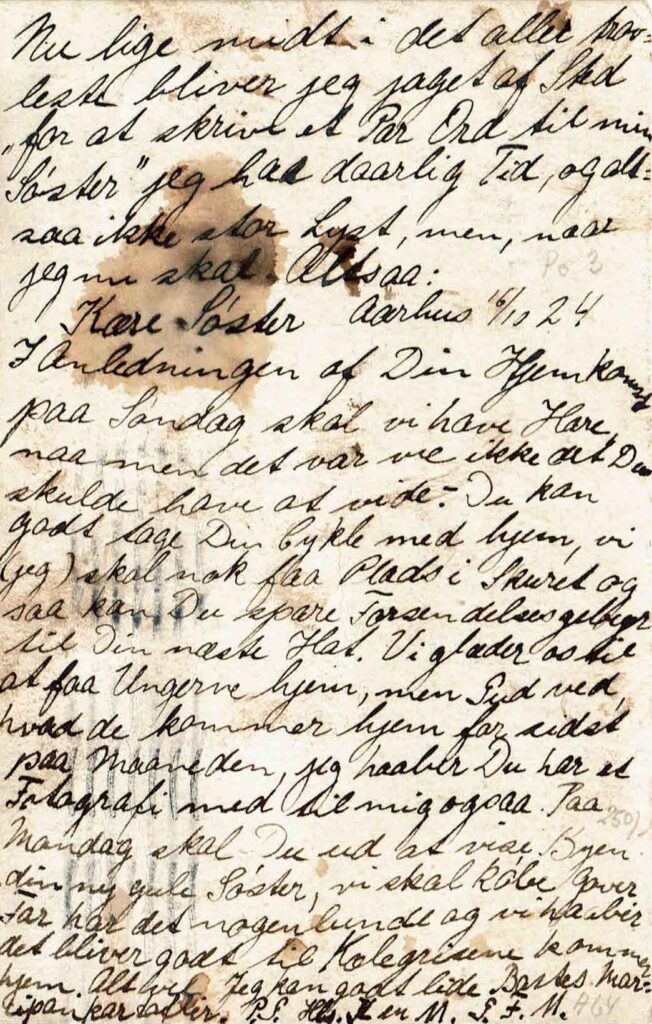 Nu lige midt i det aller trav-
leste bliver jeg jaget af Sted
"for at skrive et Par Ord til min
Søster" jeg har daarlig Tid, og alt-
saa ikke stor Lyst, men, naar
jeg nu skal. Altsaa:
Po 3
Kære Søster Aarhus 16/10 24
I Anledningen af Din Hjemkomst
paa Søndag skal vi have Hare,
naa men det var vel ikke det Du
skulde have at vide. Du kan
godt tage Din Cykle med hjem, vi
(jeg) skal nok faa Plads i Skuret og
saa kan Du spare Forsendelsesgebyr
til Din næste Hat. Vi glæder os til
at faa Ungerne hjem, men Gud ved,
hvad de kommer hjem for sidst
paa Maaneden, jeg haaber Du har et
Fotografi med til mig ogsaa. Paa
Mandag skal Du ud at vise Byen
din ny gule Søster, vi skal købe Gaver
Far har det nogenlunde og vi haaber
det bliver godt til Kælegrisene kommer
hjem. Alt vel. Jeg kan godt lide Bastes Mar-
cipankartofler. P.S. M. G. F. M.
A64